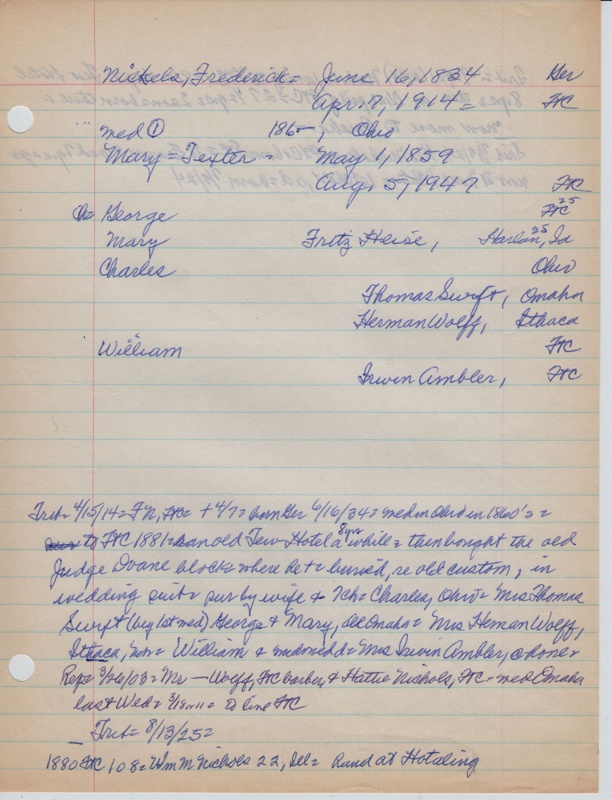 Nickels, Frederick = June 16, 1834 Ger
Apr 7, 1914 = FtC
med ① 186-, Ohio
Mary = Texter = May 1, 1859
Aug. 5, 1947 FtC
Ch = George FtC 25
Mary Fritz Heise, Harlan, Ia 25
Charles Ohio
Thomas Swift, Omaha
Herman Wolff, Ithaca
William FtC
Irwin Ambler, FtC
Trib = 4/15/14 = F N, FtC = + 4/7 = born Ger 6/16/34 = med in Ohio in 1860's =
to FtC 1881 = ran old Tew Hotel a while = 8 yrs then bought the old
Judge Doane block = where he + = buried, re old custom, in
wedding suit = sur by wife & 7ch = Charles, Ohio = Mrs Thomas
Swift (by 1st med) George & Mary, all Omaha = Mrs Heman Wolff,
Ithaca, = William & = Mrs Irwin Ambler, @ home =
Rep = 3/26/03 = Mr — Wolff, FtC barber, & Hattie Nichols, FtC - med Omaha
last Wed = = @ line FtC
— Trib = 8/13/25 =
1880 FtC 108 = Wm M Nichols 22, Ill = Rand at Hotaling